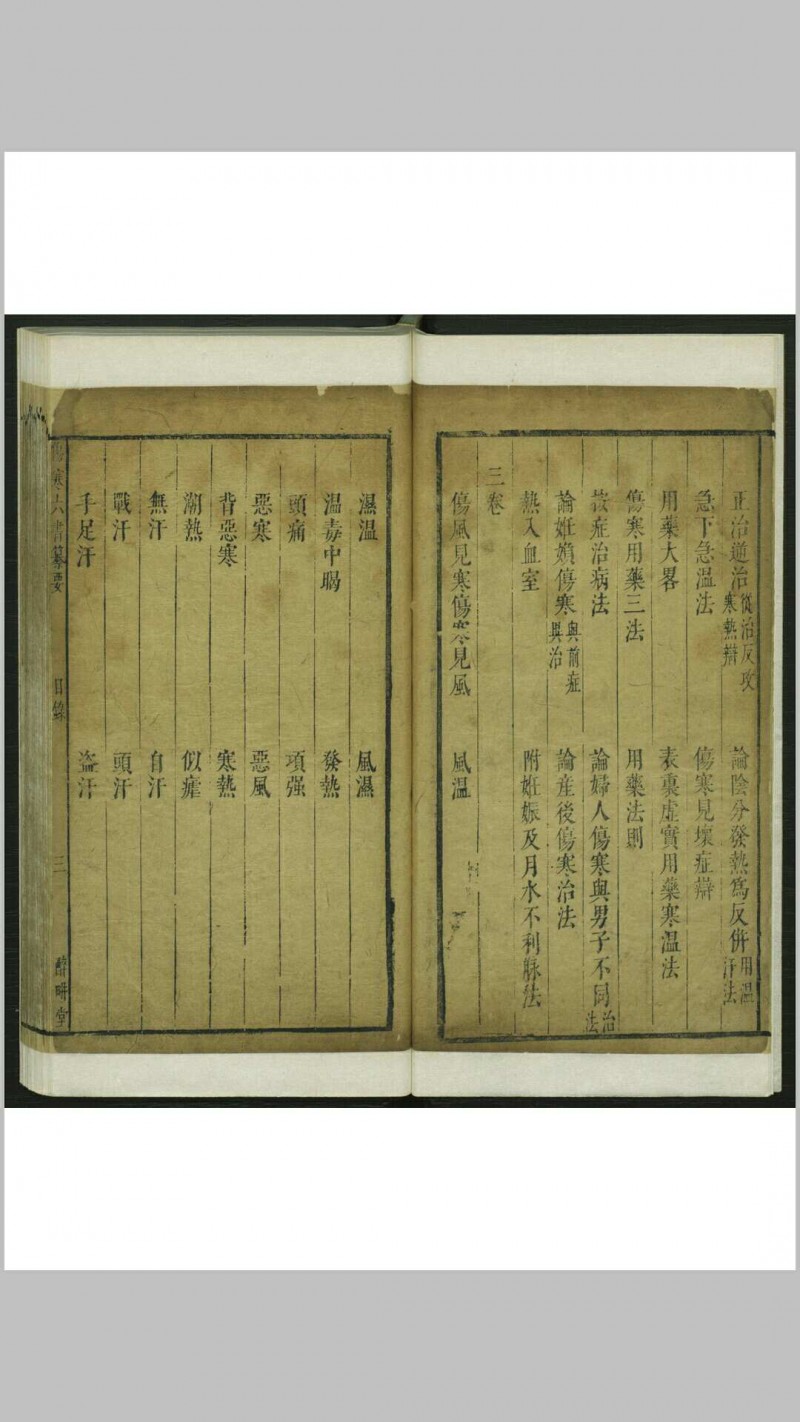 正治道治從治反攻寒熱辯 論陰分發熱爲反併用温汗法
急下急温法 傷寒見壞症辯
用藥大畧 表裏虛實用藥寒温法
傷寒用藥三法 用藥法則
按症治病法 論婦人傷寒與男子不同治法
論姙娠傷寒與前症與治 論産後傷寒治法
熱入血室 附姙娠及月水不利脉法
三卷
傷風見寒傷寒見風 風温
濕温 風濕
温毒中暍 發熱
頭痛 項强
惡寒 惡風
背惡寒 寒熱
潮熱 似瘧
無汗 自汗
戰汗 頭汗
手足汗 盗汗
寒六書纂要 目錄 三 醉畊堂